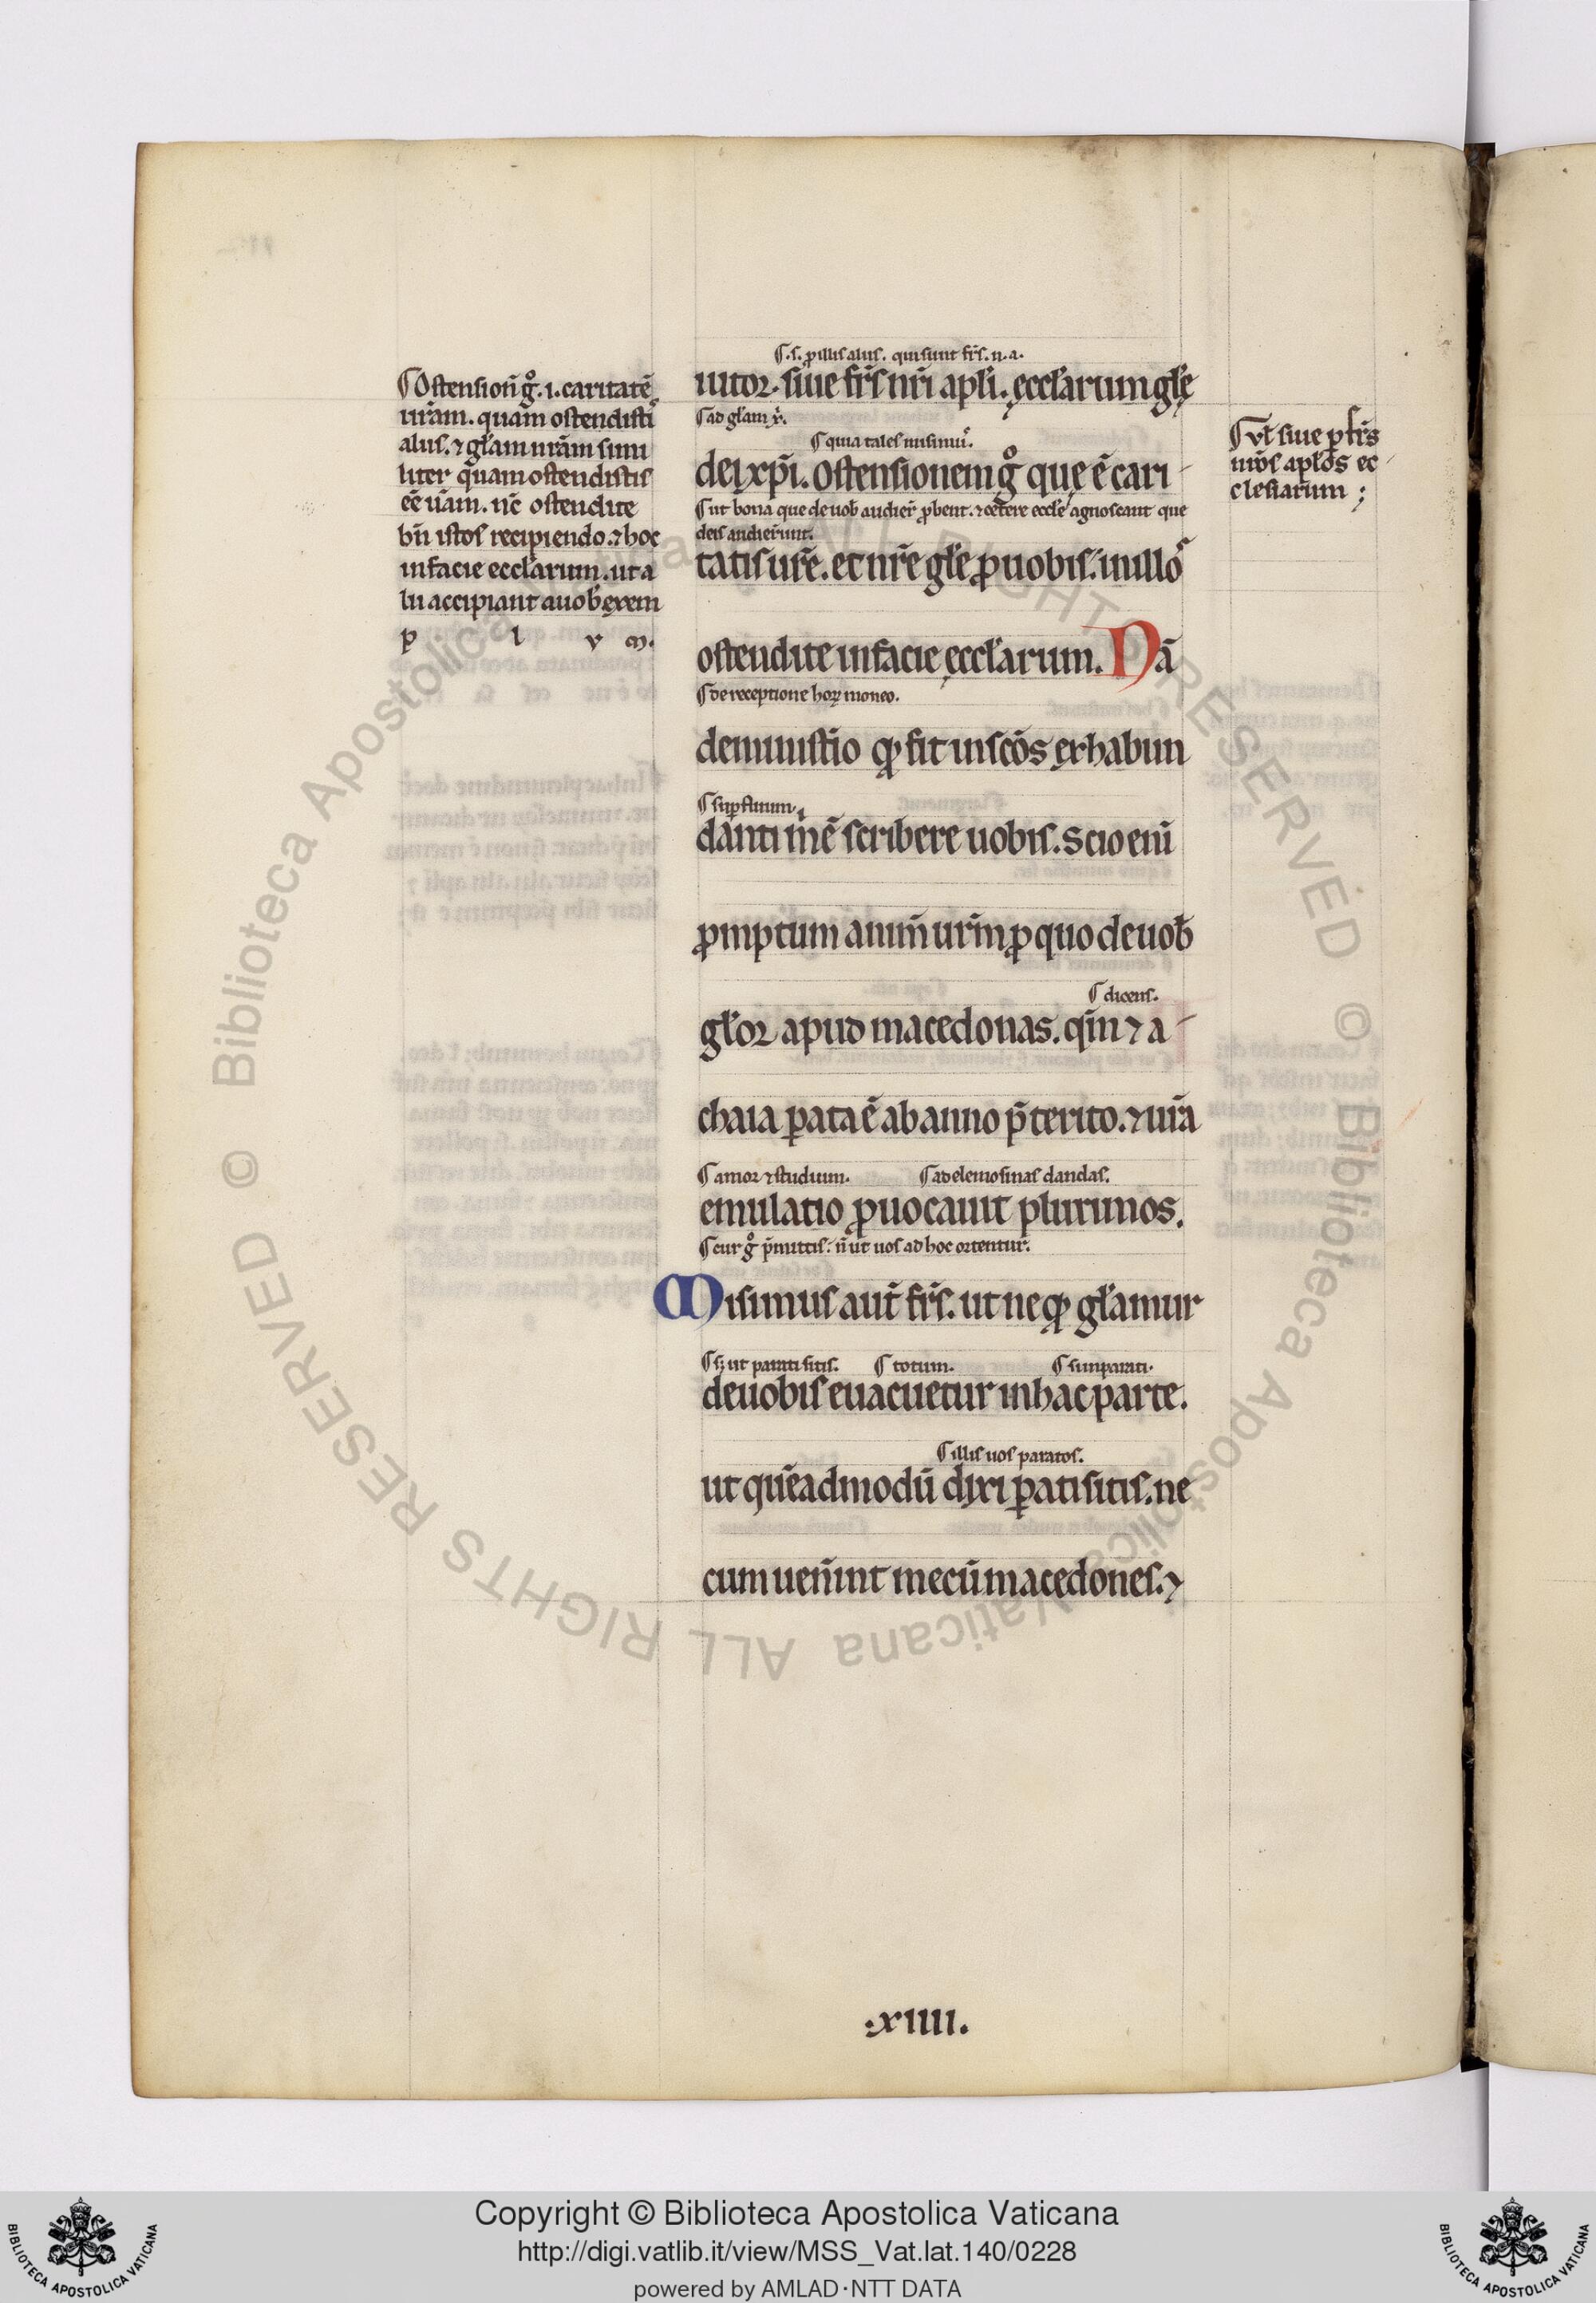 ¶ Ostensionē gͦ. i. caritatē
ur̄am. quam ostendisti
aliis. ⁊ gl̄am nr̄am simi
liter quam ostendistis
eē ur̄am. nc̄ ostendite
bn̄ istos recipiendo. ⁊ hoc
in facie eccl̄arum. ut a
lii accipiant a uob̄ exem
p l v m.
¶ .s. ꝓ illis aliis. qui sunt fr̄s. n. a.
iutor. siue fr̄s nr̄i apl̄i. ęccl̄arum gl̄ę
¶ ad gl̄am xp̄i.
¶ quia tales misimus.
dei xp̄i. Ostensionem gͦ quę ē cari
¶ ut bona que de uob̄ audier̄ ꝓbent. ⁊ cetere eccl̄e agnoscant que
de is audierunt.
tatis ur̄e. et nr̄e gl̄e ꝓ uobis. in illoˢ
ostendite in facie ęccl̄arum. Nā
¶ de receptione hoꝝ moneo.
de ministr̄io qđ fit in sc̄os ex habun
¶ suꝑfluum.
danti m̄ ē scribere uobis. Scio enī
ꝓmptum anim̄ ur̄m ꝓ quo de uob̄
¶ dicens.
gl̄or apud macedonas. qm̄ ⁊ a
chaia ꝑata ē ab anno p̄terito. ⁊ ur̄a
¶ amor ⁊ studium. ¶ ad elemosinas dandas.
emulatio ꝓuocauit plurimos.
¶ cur gͦ p̄mittis. n̄ ut uos ad hoc ortentur.
Misimus aut̄ fr̄s. ut ne qđ gl̄amur
¶ sꝫ ut parati sitis. ¶ totum. ¶ s. inparati.
de uobis euacuetur in hac parte.
¶ illis uos paratos.
ut quēadmodū dixi ꝑati sitis. ne
cum uen̄int mecū macedones. ⁊
¶ Vł siue ꝑ fr̄s
nr̄os apl̄os ec
clesiarum ;
.xiiii.
Copyright © Biblioteca Apostolica Vaticana
http://digi.vatlib.it/view/MSS_Vat.lat.140/0228
powered by AMLAD·NTT DATA
BIBLIOTECA APOSTOLICA VATICANA
BIBLIOTECA APOSTOLICA VATICANA
© Biblioteca Apostolica Vaticana ALL RIGHTS RESERVED © Biblioteca Apostolica Vaticana ALL RIGHTS RESERVED